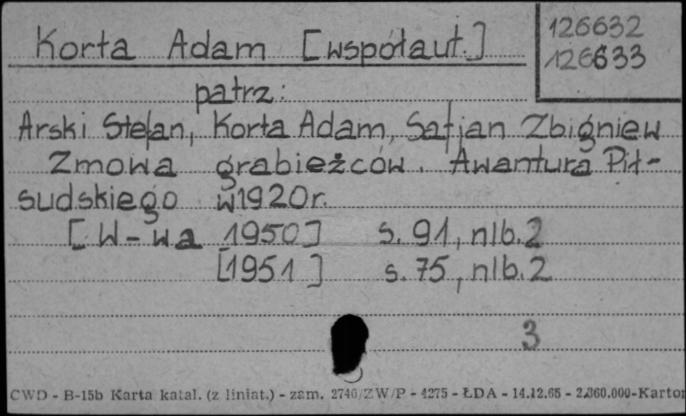 Korta Adam [współaut.]
126632
126633
patrz:
Arski Stefan, Korta Adam, Safjan Zbigniew
Zmowa grabieżców. Awantura Pił-
sudskiego w 1920 r.
[W-wa 1950] s. 91, nlb. 2
[1951] s. 75, nlb. 2
3
CWD - B-15b Karta katal. (z liniat.) - zam. 2740/ZW/P - 4275 - ŁDA - 14.12.65 - 2.360.000 - Karton